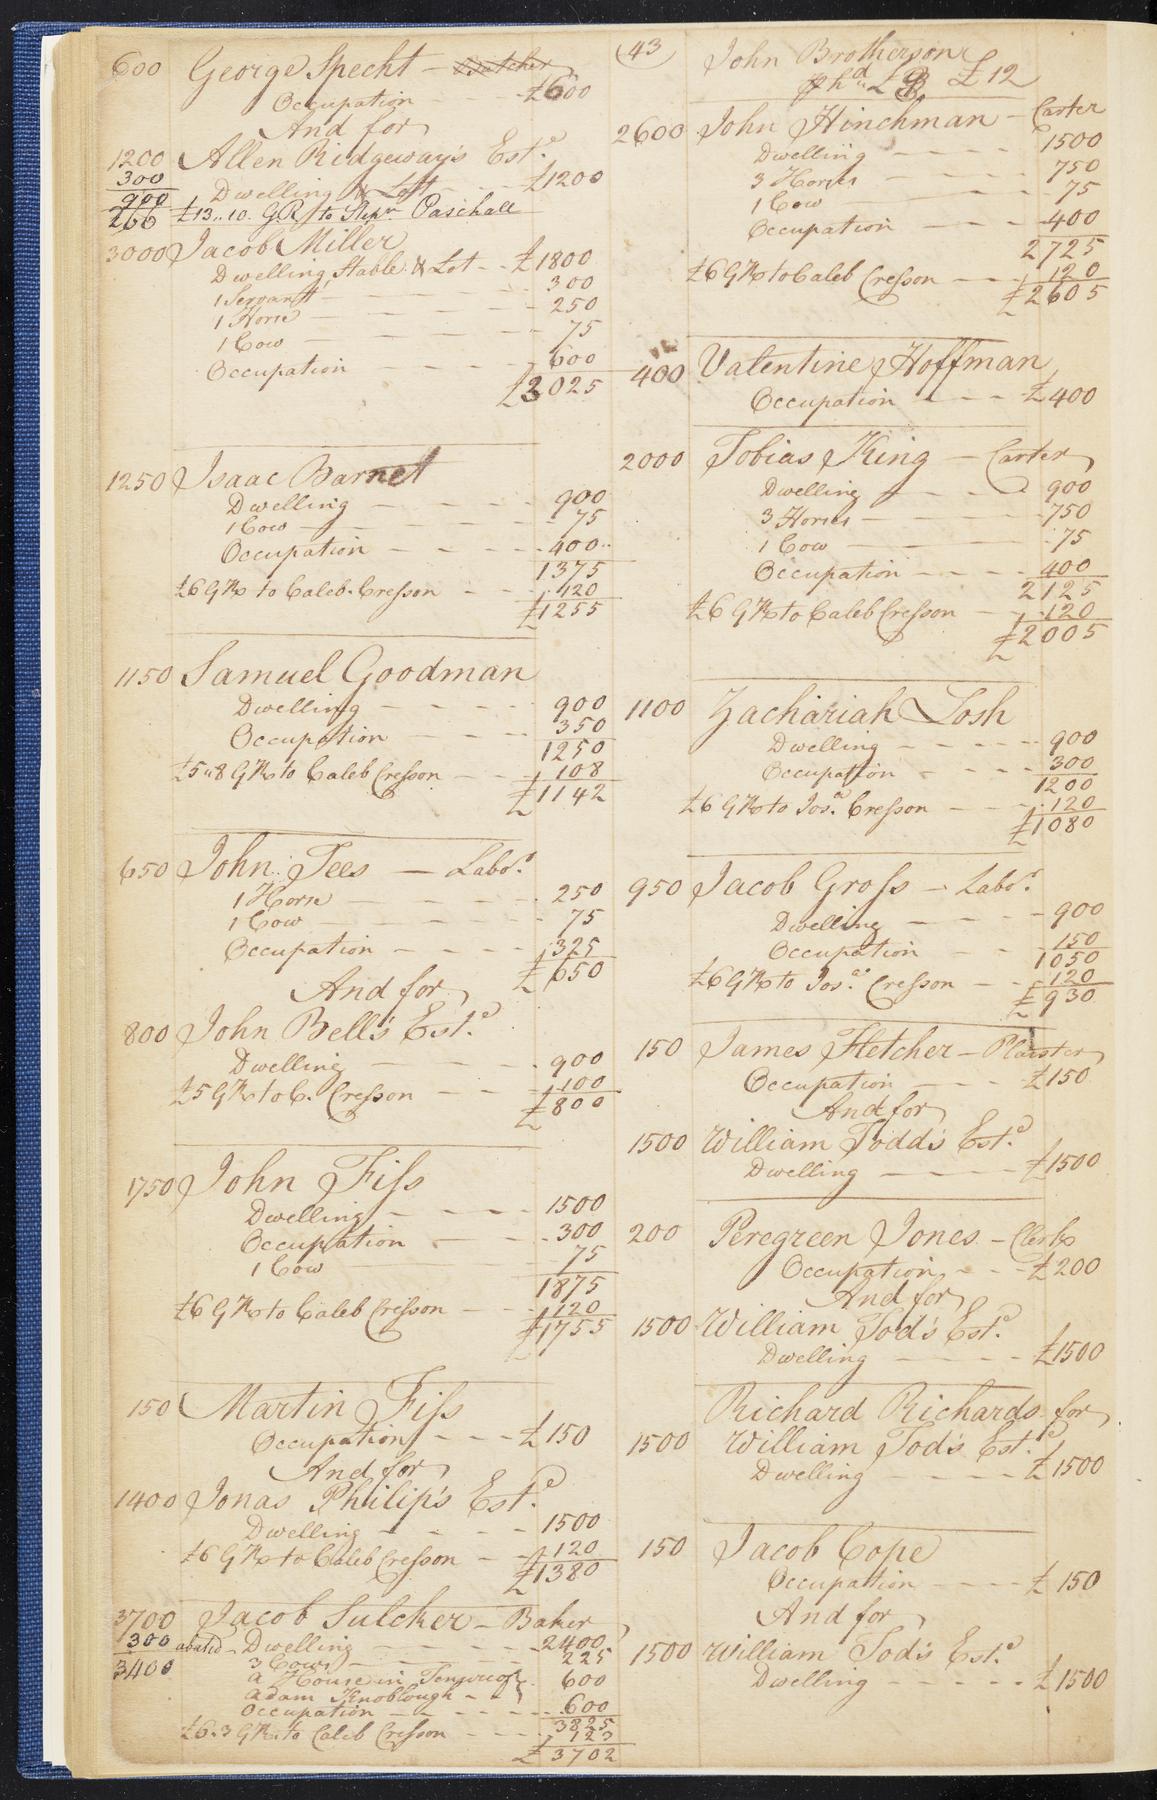 600 George Specht — Butcher
Occupation £600
And for
1200 Allen Ridgeway's Est.e
300 Dwelling & Lott £1200
900
266 £13..10. GR to Paschall
3000 Jacob Miller
Dwelling, Stable & Lot £1800
1 Servant 300
1 Horse 250
1 Cow 75
Occupation 600
£3025
1250 Isaac Barnet
Dwelling 900
1 Cow 75
Occupation 400
1375
£6 GRt to Caleb Cresson 120
£1255
1150 Samuel Goodman
Dwelling 900
Occupation 350
1250
£5..8 GRt to Caleb Cresson 108
£1142
650 John Tees — Labo.r
1 Horse 250
1 Cow 75
Occupation 325
£650
And for
800 John Bell's Est.e
Dwelling 900
£5 GRt to C. Cresson 100
£800
1750 John Fiss
Dwelling 1500
Occupation 300
1 Cow 75
1875
£6 GRt to Caleb Cresson 120
£1755
150 Martin Fiss
Occupation £150
And for
1400 Jonas Philip's Est.e
Dwelling 1500
£6 GRt to Caleb Cresson 120
£1380
3700 Jacob Sulcker — Baker
300 abated Dwelling 2400
3 Cows 225
3400
a House in Tenure of 600
Adam Knoblough
Occupation 600
3825
£6.3 GRt to Caleb Cresson 123
£3702
43
John Brotherson
£12
2600 John Hinchman — Carter
Dwelling 1500
3 Horses 750
1 Cow 75
Occupation 400
2725
£6 GRt to Caleb Cresson 120
£2605
400 Valentine Hoffman
Occupation £400
2000 Tobias King — Carter
Dwelling 900
3 Horses 750
1 Cow 75
Occupation 400
2125
£6 GRt to Caleb Cresson 120
£2005
1100 Zachariah Losh
Dwelling 900
Occupation 300
1200
£6 GRt to Jos.a Cresson 120
£1080
950 Jacob Gross — Labo.r
Dwelling 900
Occupation 150
1050
£6 GRt to Jos.a Cresson 120
£930
150 James Fletcher — Plaister
Occupation £150
And for
1500 William Todd's Est.e
Dwelling £1500
200 Peregreen Jones — Clerk
Occupation £200
And for
1500 William Tod's Est.e
Dwelling £1500
Richard Richards for
1500 William Tod's Est.e
Dwelling £1500
150 Jacob Cope
Occupation £150
And for
1500 William Tod's Est.e
Dwelling £1500